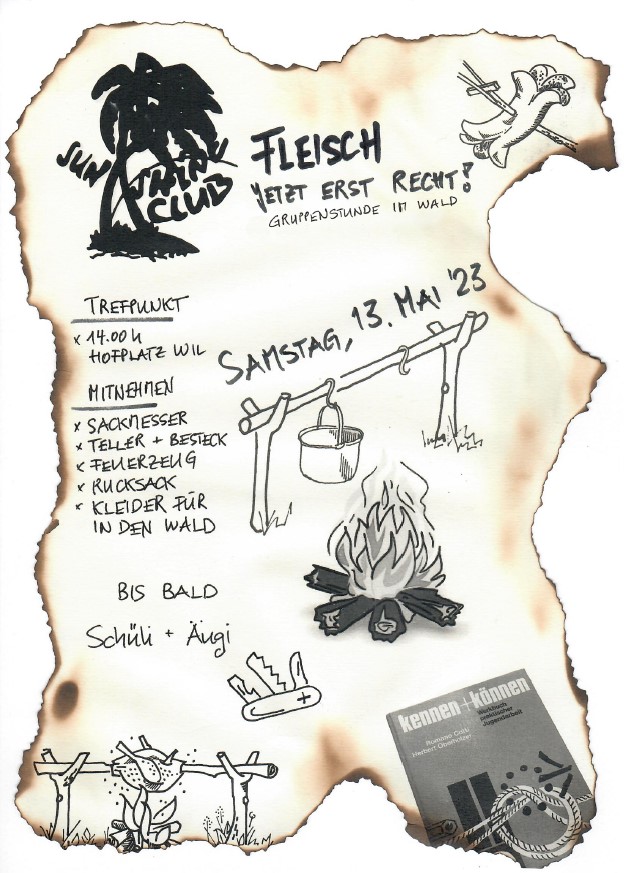 SUN
SHINE
CLUB
FLEISCH
JETZT ERST RECHT!
GRUPPENSTUNDE IM WALD
SAMSTAG, 13. MAI '23
TREFPUNKT
x 14.00 h
HOFPLATZ WIL
MITNEHMEN
x SACKMESSER
x TELLER + BESTECK
x FEUERZEUG
x RUCKSACK
x KLEIDER FÜR
IN DEN WALD
BIS BALD
Schüli + Äugi
kennen+können
Werkbuch
praktischer
Jugendarbeit
Herbert Oberholzer